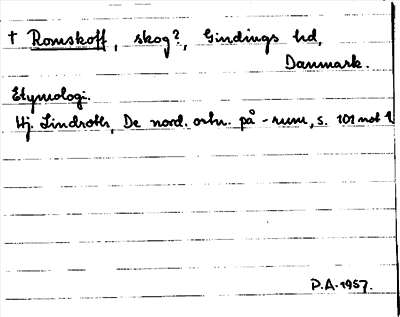 † Romskoff, skog?, Gindings hd,
Danmark.
Etymologi.
Hj. Lindroth, De nord. ortn. på -rum, s. 101 not 2
P.A. 1957.